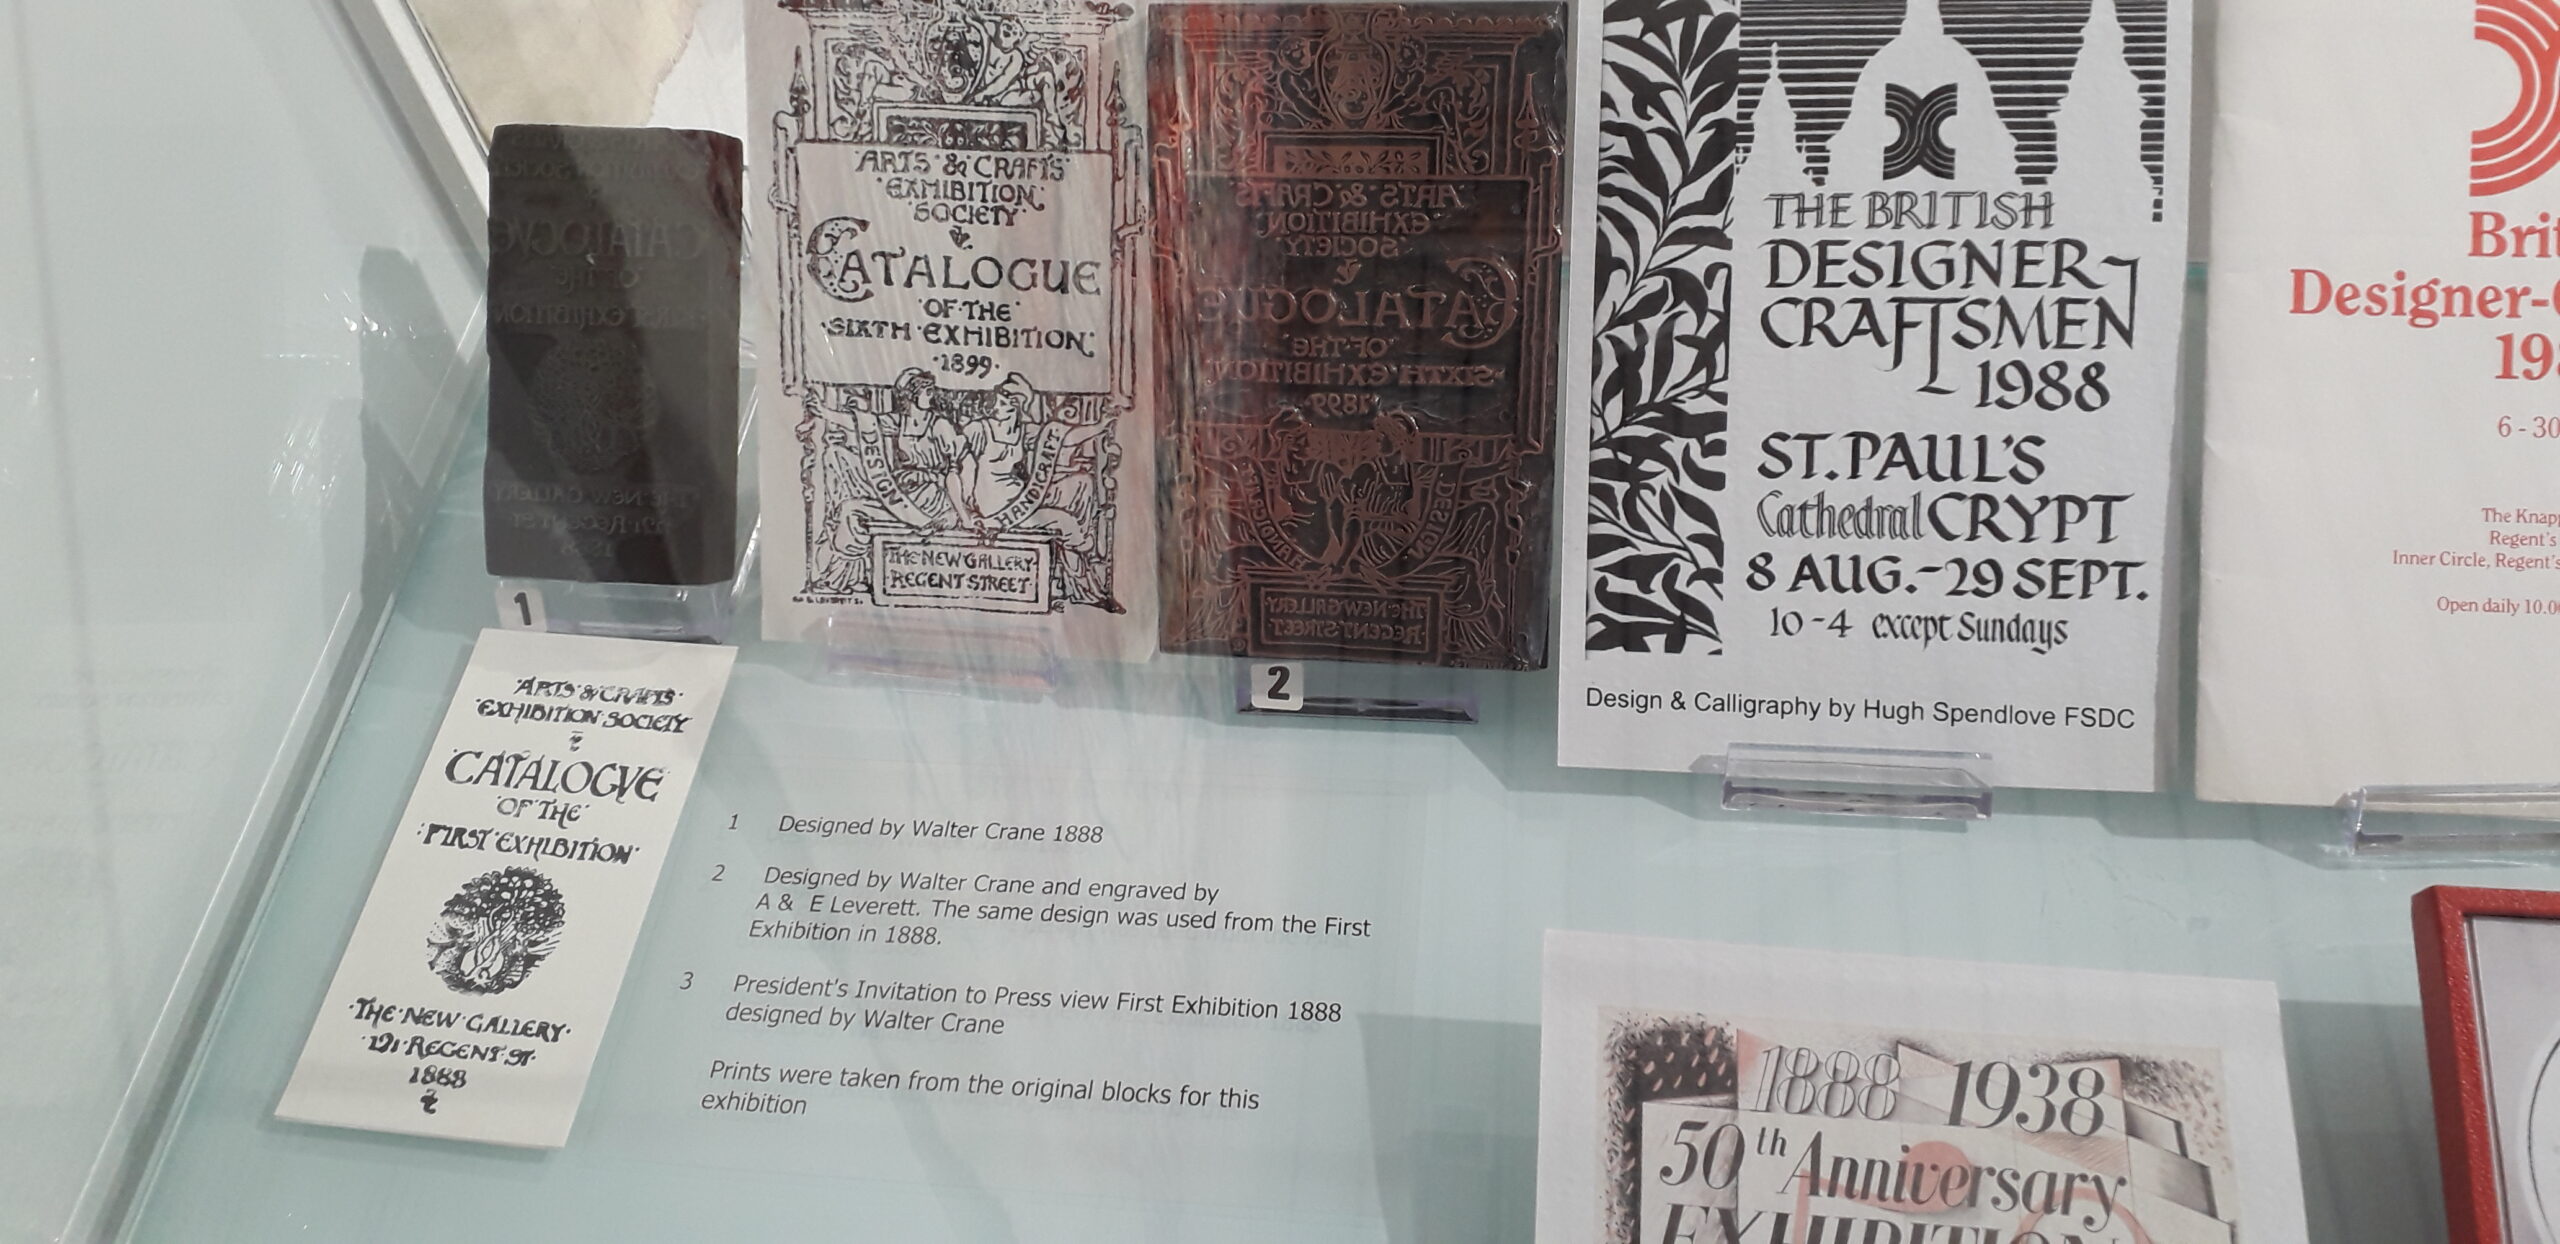 ARTS & CRAFTS
EXHIBITION
SOCIETY
CATALOGUE
OF THE
SIXTH EXHIBITION
1899
DESIGN
HANDICRAFT
THE NEW GALLERY
REGENT STREET
ARTS & CRAFTS
EXHIBITION
SOCIETY
CATALOGUE
OF THE
SIXTH EXHIBITION
1899
HANDICRAFT
DESIGN
THE NEW GALLERY
REGENT STREET
CATALOGVE
OF THE
FIRST EXHIBITION
THE NEW GALLERY
121 REGENT ST
1888
1
2
THE BRITISH
DESIGNER-
CRAFTSMEN
1988
ST. PAUL'S
Cathedral CRYPT
8 AUG.-29 SEPT.
10-4 except Sundays
Design & Calligraphy by Hugh Spendlove FSDC
Designer-
6 - 30
The
Regent's
Inner Circle, Regent's
Open daily
ARTS & CRAFTS
EXHIBITION SOCIETY
CATALOGVE
OF THE
FIRST EXHIBITION
THE NEW GALLERY
121 REGENT ST
1888
1 Designed by Walter Crane 1888
2 Designed by Walter Crane and engraved by
A & E Leverett. The same design was used from the First
Exhibition in 1888.
3 President's Invitation to Press view First Exhibition 1888
designed by Walter Crane
Prints were taken from the original blocks for this
exhibition
1888 1938
50th Anniversary
EXHIBITION